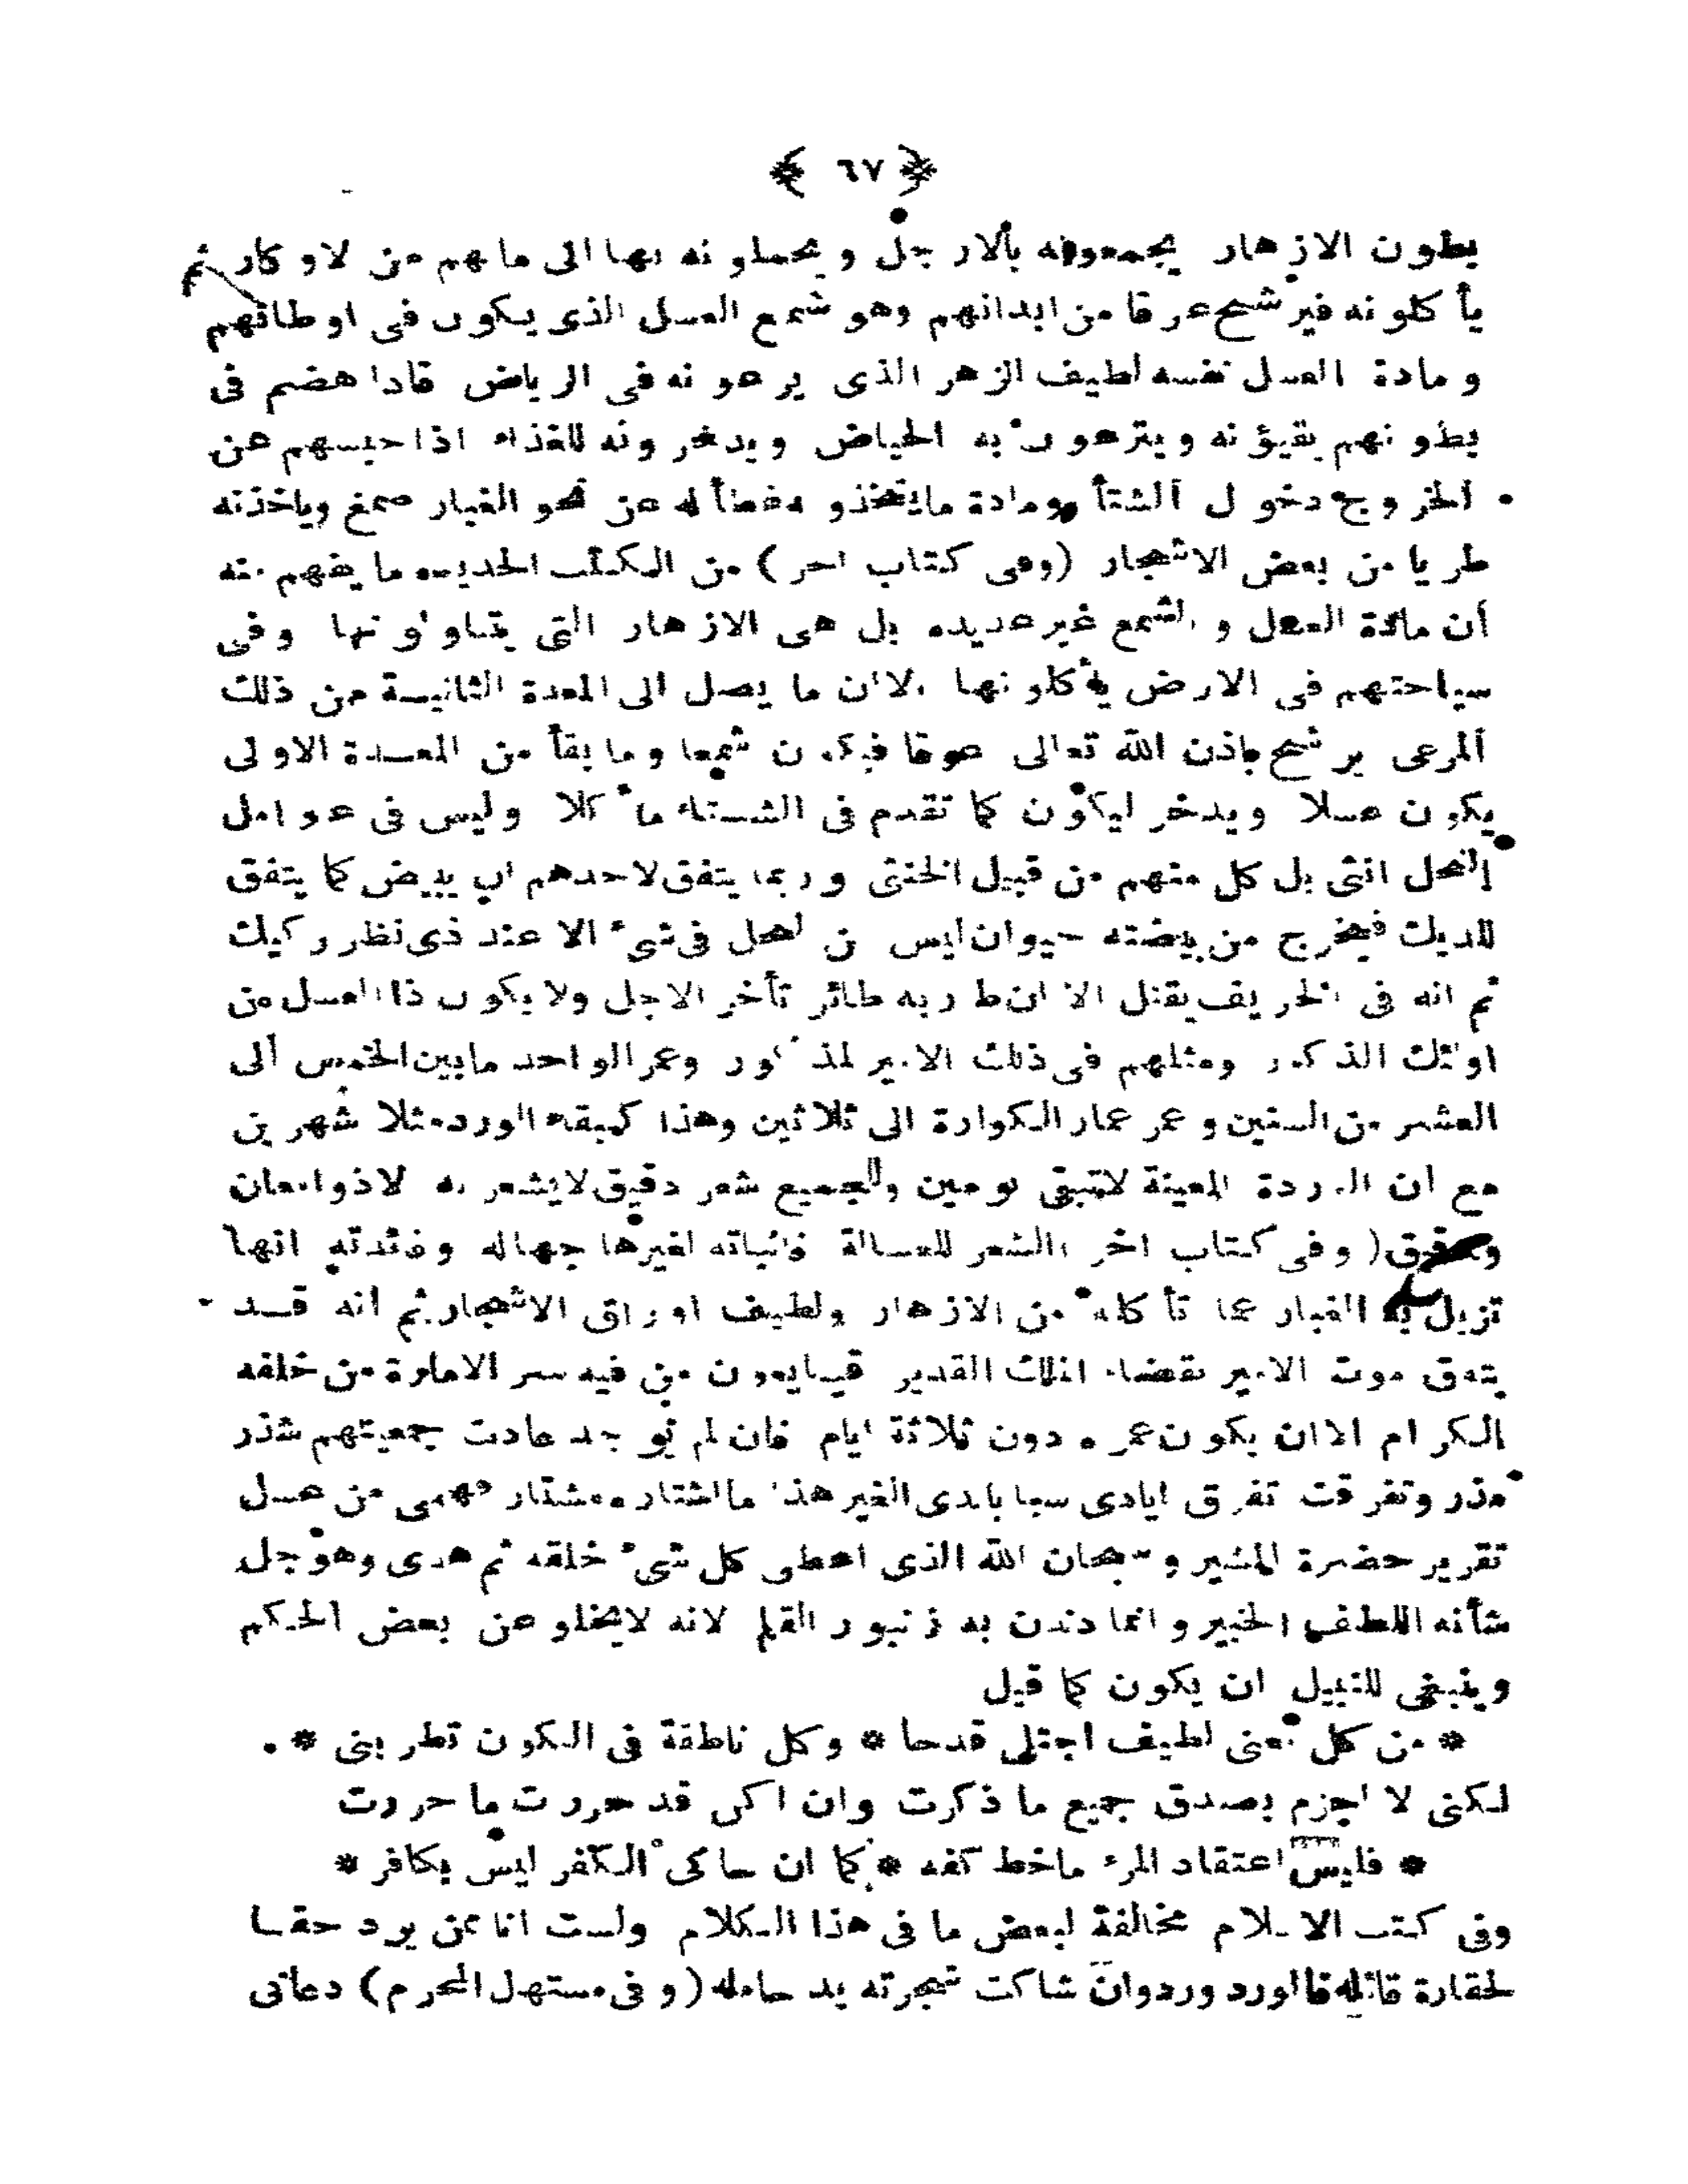 ﴿ ٦٧ ﴾
بطون الازهار يجمعونه بالارجل ويحملونه بها الى مالهم من لاوكار ثم
يأكلونه فيرشح عرقا من ابدانهم وهو شمع العسل الذى يكون فى اوطانهم
ومادة العسل نفسه لطيف الزهر الذى يرعونه فى الرياض فاذا هضم فى
بطونهم يقيؤنه ويترعون به الحياض ويدخرونه للغذاء اذا حبسهم عن
الخروج دخول الشتأ ومادة مايتخذو غطأ له عن نحو الغبار صمغ وياخذنه
طريا من بعض الاشجار (وفى كتاب اخر) من الكتب الحديثه مايفهم منه
أن مادة العسل والشمع غير عديده بل هى الازهار التى يتناولونها وفى
سياحتهم فى الارض يأكلونها الاان ما يصل الى المعدة الثانيسة من ذلك
المرعى يرشح باذن الله تعالى عرقا فيكون شمعا وما يبقأ من المعدة الاولى
يكون عسلا ويدخر ليكون كما تقدم فى الشستاء مأكلا وليس فى عوامل
النحل انثى بل كل منهم من قبيل الخنثى وربما يتفق لاحدهم ان يبيض كما يتفق
للديك فيخرج من بيضته حيوان ليس من النحل فى شئ الا عند ذى نظر ركيك
ثم انه فى الخريف يقتل الا ان طار به طائر تأخر الاجل ولا يكون ذا العسل من
اولئك الذكور ومثلهم فى ذلك الامير المذكور وعمر الواحد مابين الخمس الى
العشر من السنين وعمر عمار الكوارة الى ثلاثين وهذا كبقاء الورد مثلا شهرين
مع ان الوردة المعينة لاتبقى يومين وللجميع شعر دقيق لايشعر به الاذو امعان
(وفى كتاب اخر) الشعر للعسالة فاثباته لغيرها جهاله وفائدته انها
تزيل به الغبار عما تأكله من الازهار ولطيف اوراق الاشجار ثم انه قسد
يتفق موت الامير بقضاء الملك القدير من فيه سر الامارة من خلفه
الكرام الاان يكون عمره دون ثلاثة ايام فان لم يوجد عادت جمعيتهم شذر
مذر وتفرقت تفرق ايادى سبا بايدى الغير هذا مااشتاره مشتار فهمى من عسل
تقرير حضرة المشير وسبحان الله الذى اعطى كل شئ خلقه ثم هدى وهو جل
شأنه اللطف الخبير وانما دندن به زنبور القلم لانه لايخلو عن بعض الحكم
وينبغى للنبيل ان يكون كما قيل
* من كل معنى لطيف اجتلى قدحا * وكل ناطقة فى الكون تطربنى *
لكنى لا اجزم بصدق جميع ما ذكرت وان اكن قد حررت ما حررت
* فليس اعتقاد المرء ماخط كفه * كما ان حاكى الكفر ليس بكافر *
وفى كتب الاسلام مخالفة لبعض ما فى هذا الكلام ولست انا ممن يرد حقسا
لحقارة قائله فالورد ورد وان شاكت شجرته يد حامله (وفى مستهل المحرم) دعانى